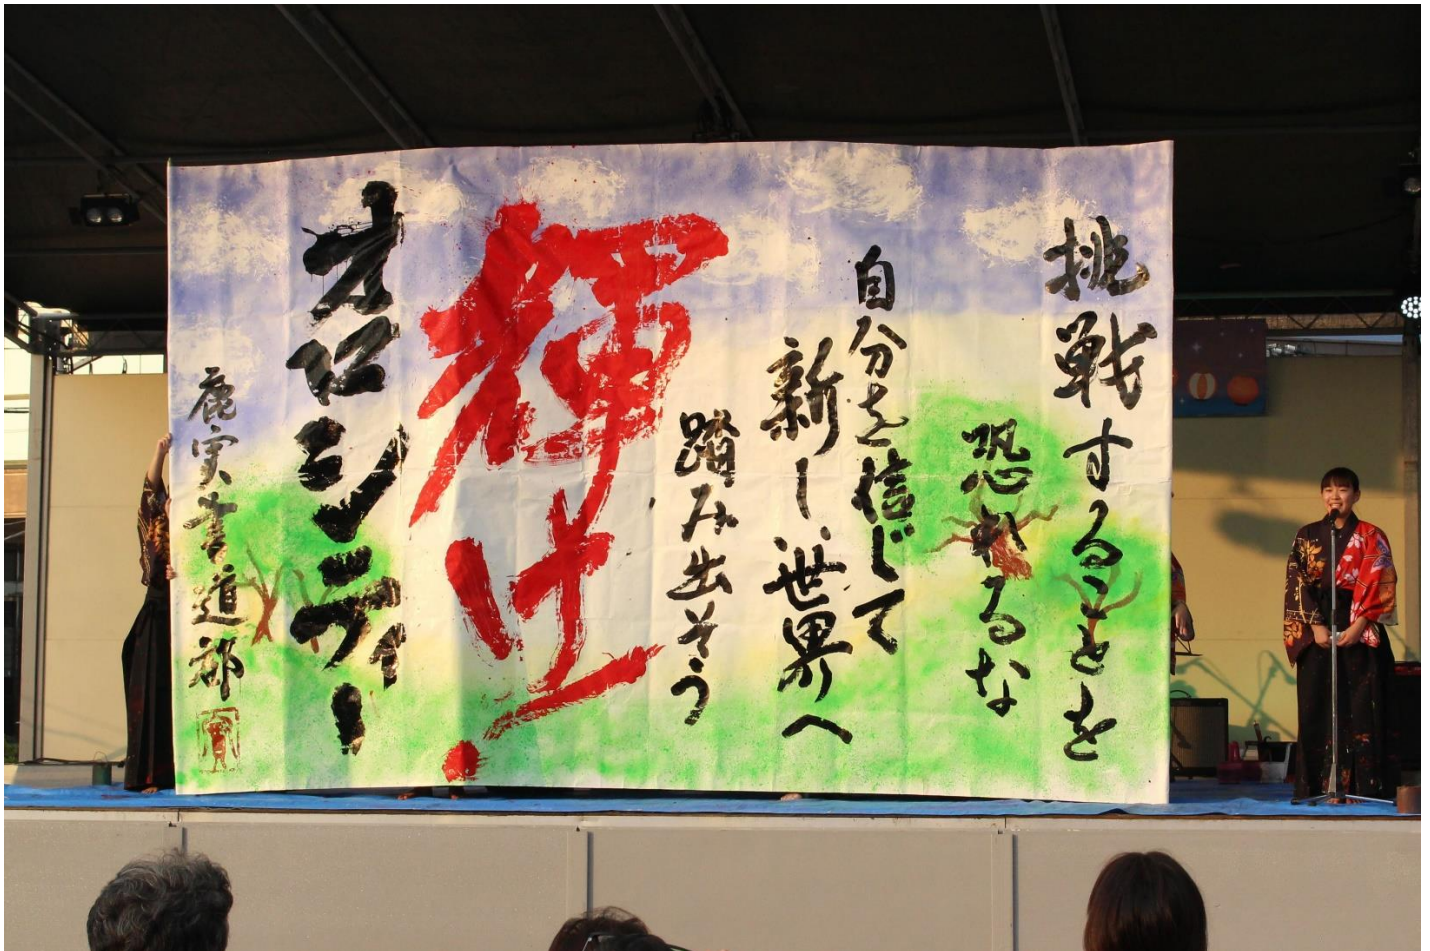 挑戦することを
恐れるな
自分を信じて
新しい世界へ
踏み出そう
輝け!
オロシティー
鹿実書道部